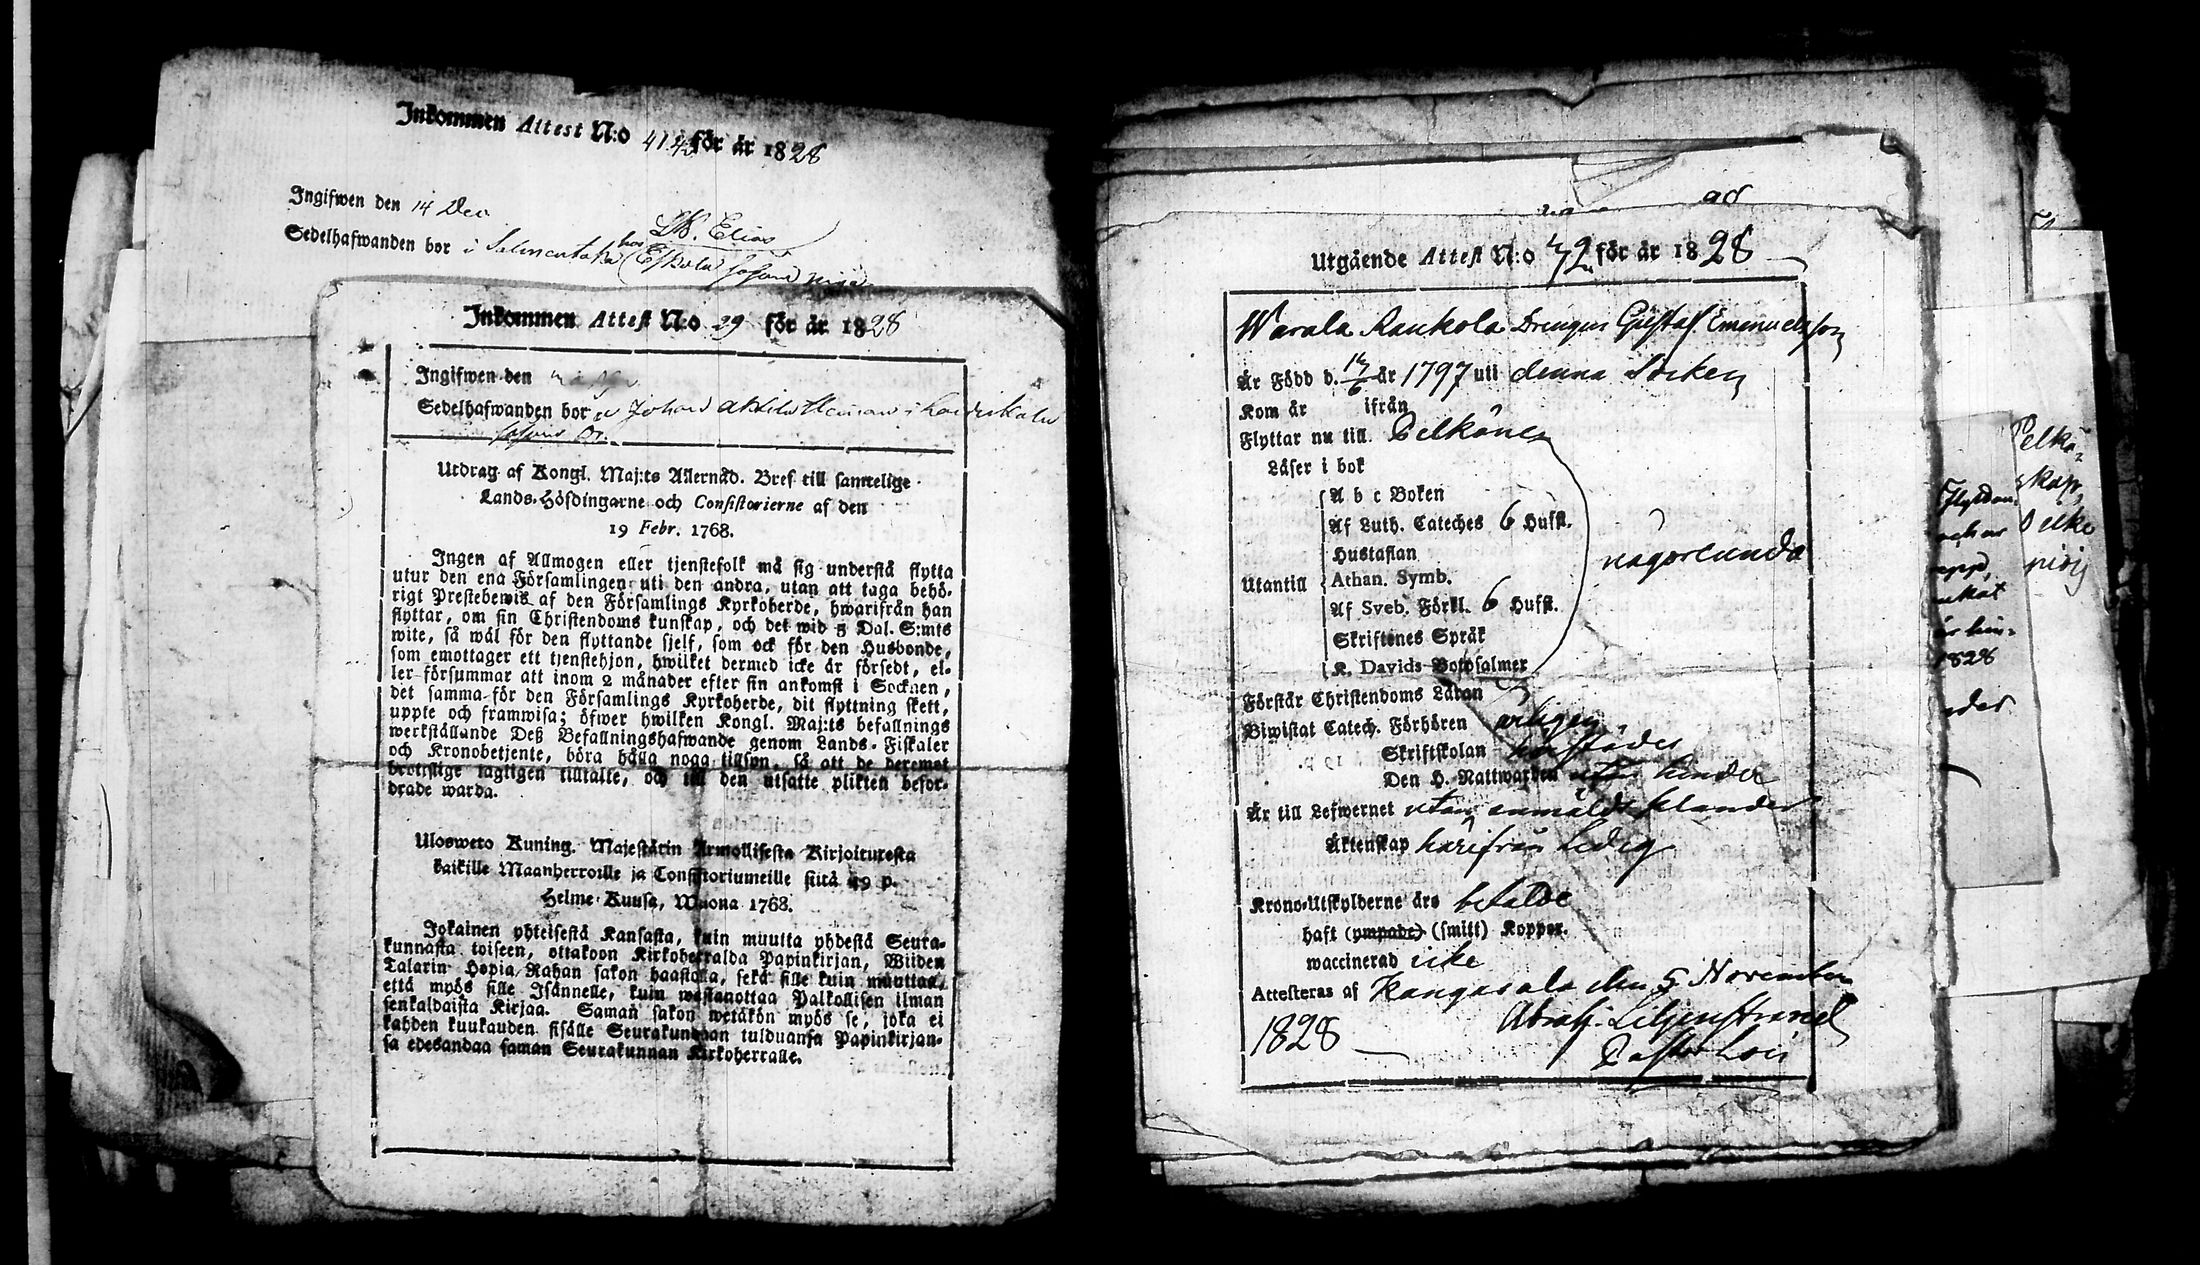 Inkommen Attest N:o 41 för år 1828
Ingifwen den 14 Dec
Sedelhafwanden bor i Salmentaka hos
Elias
Inkommen Attest N:o 29 för år 1828
Ingifwen den
Sedelhafwanden bor Johan
Utdrag af Kongl. Maj:ts Allernåd. Bref till samtelige
Lands-Höfdingarne och Consistorierne af den
19 Febr. 1768.
Ingen af Allmogen eller tjenstefolk må sig understå flytta
utur den ena Församlingen uti den andra, utan att taga behö-
rigt Prestebewis af den Församlings Kyrkoherde, hwarifrån han
flyttar, om sin Christendoms kunskap, och det wid 5 Dal. S:mts
wite, så wäl för den flyttande sjelf, som ock för den Husbonde,
som emottager ett tjenstehjon, hwilket dermed icke är försedt, el-
ler försummar att inom 2 månader efter sin ankomst i Socknen,
det samma för den Församlings Kyrkoherde, dit flyttning skett,
uppte och framwisa; öfwer hwilken Kongl. Maj:ts befallnings
werkställande Deß Befallningshafwande genom Lands-Fiskaler
och Kronobetjente, böra hålla noga tillsyn, så att de deremot
brottslige lagligen tilltalte, och till den utsatte plikten befor-
drade warda.
Ulosweto Kuning. Majestätin Armollisesta Kirjoituxesta
kaikille Maanherroille ja Consistoriumeille siitä 19 p.
Helme-Kuusa, Wuona 1768.
Jokainen yhteisestä Kansasta, kuin muutta yhdestä Seura-
kunnasta toiseen, ottakoon Kirkoherralda Papinkirjan, Wiiden
Talarin Hopia Rahan sakon haastolla, sekä sille kuin muuttaa,
että myös sille Isännelle, kuin wastanottaa Palkollisen ilman
senkaldaista Kirjaa. Saman sakon wetäkön myös se, joka ei
kahden kuukauden sisälle Seurakundaan tulduansa Papinkirjan-
sa edesandaa saman Seurakunnan Kirkoherralle.
98
Utgående Attest N:o 72 för år 1828
Warala Raukola Drengen Gustaf Emanuelsson
Är Född d. 17/6 år 1797 uti denna Socken
Kom år ifrån
Flyttar nu till Pelkäne
Läser i bok
A b c Boken
Af Luth. Cateches 6 Hufst.
Hustaflan
Utantill Athan. Symb.
någorlunda
Af Sveb. Förkl. 6 Hufst.
Skriftenes Språk
K. Davids Botpsalmer
Förstår Christendoms Läran
Biwistat Catech. Förhören årligen
Skriftskolan
Den H. Nattwarden utan hinder
Är till Lefwernet utan anmäldt klander
Äktenskap härifrån ledig
Krono-Utskylderne äro betalde
haft (ympade) (smitt) Koppor.
waccinerad icke
Attesteras af Kangasala den 5 November
1828
Abrah. Liljenstrand
Pastor Loci
Pelkä-
1828